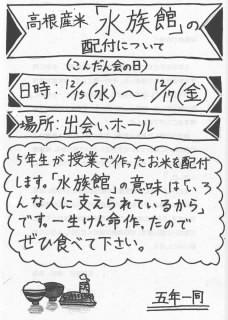 高根産米「水族館」の
配付について
(こんだん会の日)
日時:12/15(水)～12/17(金)
場所:出会いホール
5年生が授業で作ったお米を配付
します。「水族館」の意味は「いろ
んな人に支えられているから」
です。一生けん命作ったので
ぜひ食べて下さい。
五年一同